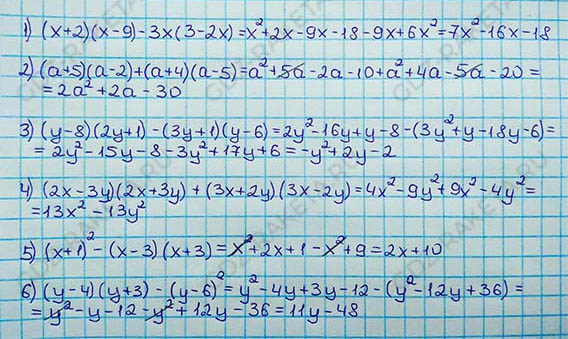 1) (x+2)(x-9)-3x(3-2x)=x²+2x-9x-18-9x+6x²=7x²-16x-18
2) (a+5)(a-2)+(a+4)(a-5)=a²+5a-2a-10+a²+4a-5a-20=
=2a²+2a-30
3) (y-8)(2y+1)-(3y+1)(y-6)=2y²-16y+y-8-(3y²+y-18y-6)=
=2y²-15y-8-3y²+17y+6=-y²+2y-2
4) (2x-3y)(2x+3y)+(3x+2y)(3x-2y)=4x²-9y²+9x²-4y²=
=13x²-13y²
5) (x+1)²-(x-3)(x+3)=x²+2x+1-x²+9=2x+10
6) (y-4)(y+3)-(y-6)²=y²-4y+3y-12-(y²-12y+36)=
=y²-y-12-y²+12y-36=11y-48